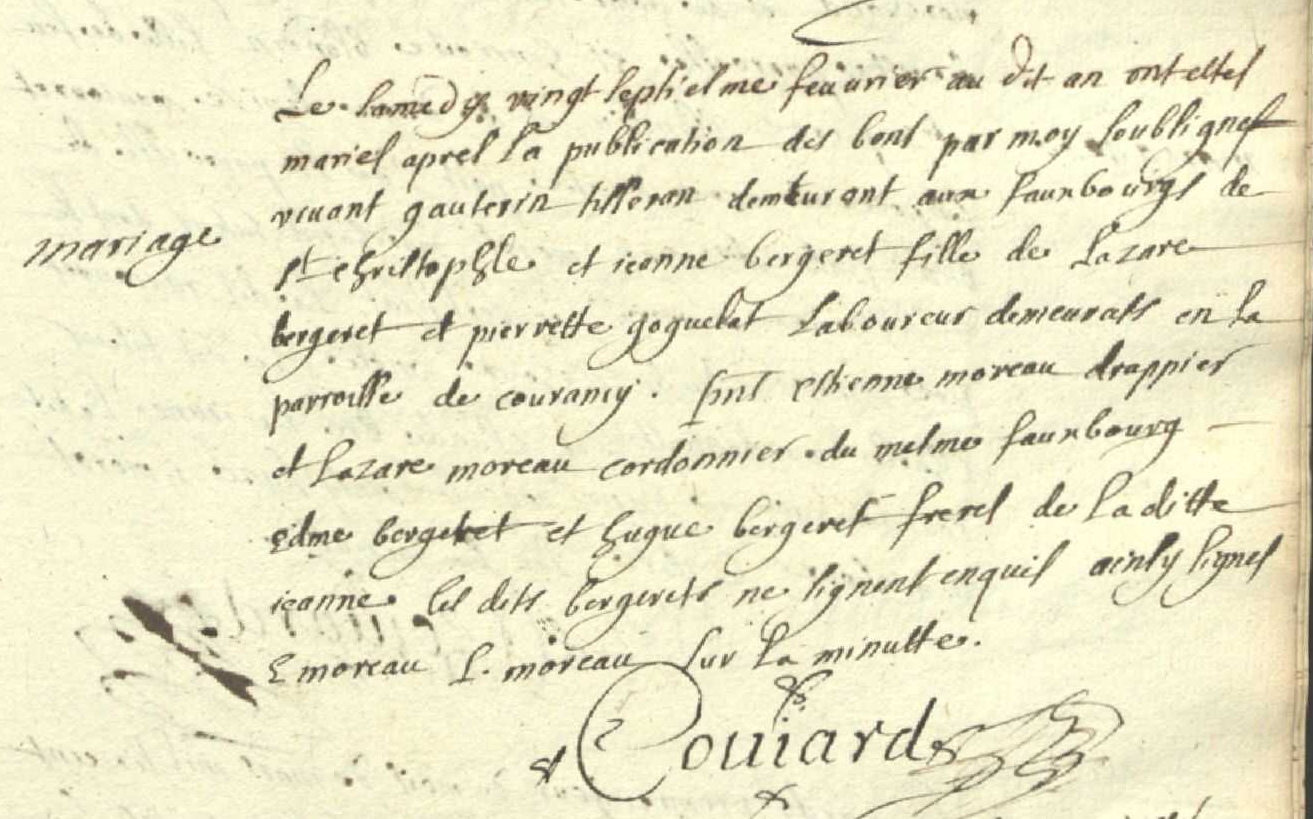 mariage
Le samedy vingt septiesme feuurier au dit an ont estes
maries apres la publication des bons par moy soubligne
viuant gauterin tisseran demeurant aux fauxbourgs de
st christophle et ieanne bergeret fille de Lazare
bergeret et pierrette goguelat Laboureur demeurats en la
parroisse de courancy. psnts estienne moreau drappier
et Lazare moreau cordonnier du mesme fauxbourg
Edme bergeret et hugue bergeret freres de la ditte
ieanne les dits bergerets ne signent enquis ainsy signes
E moreau L. moreau sur la minutte.
Couiard